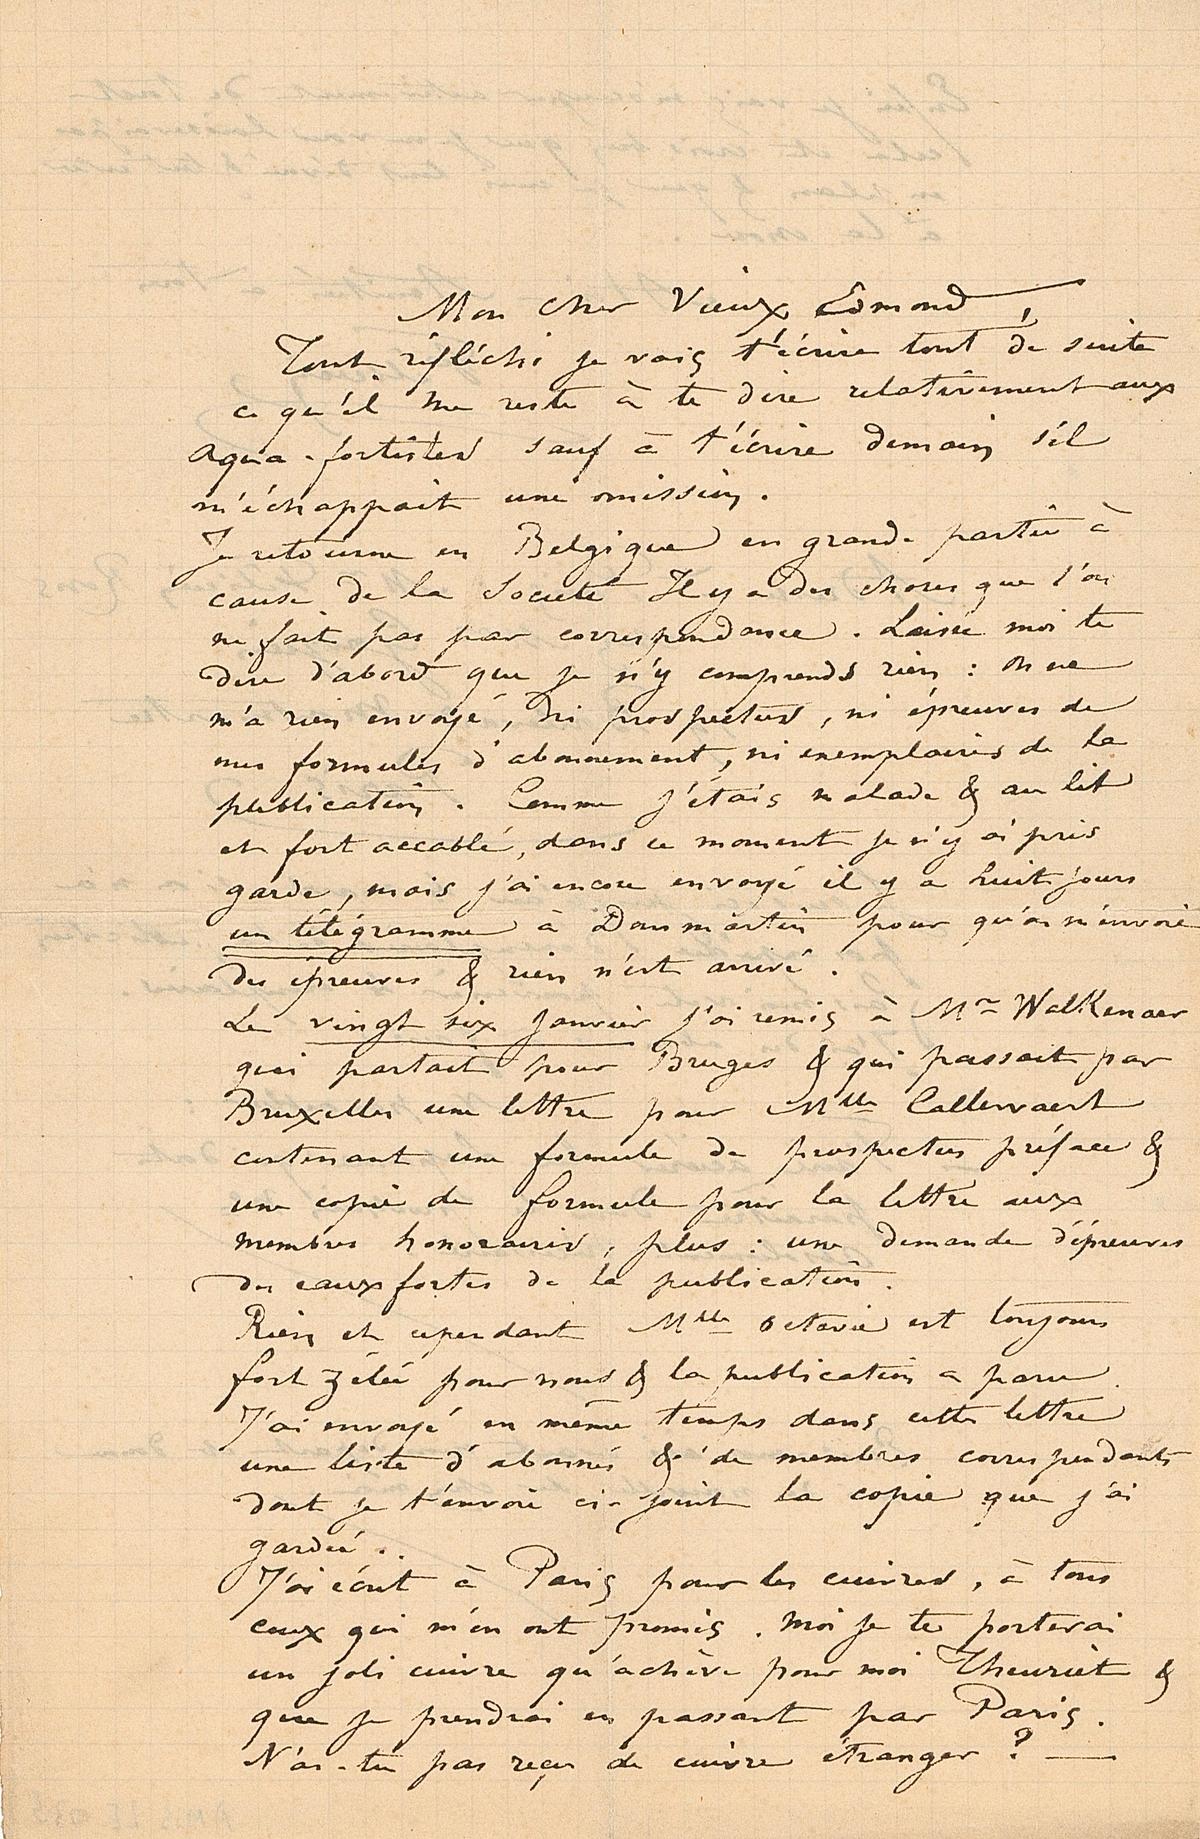 Mon cher Vieux Edmond,
Tout réfléchi je vais t'écrire tout de suite
ce qu'il me reste à te dire relativement aux
aqua-fortistes sauf à t'écrire demain s'il
m'échappait une omission.
Je retourne en Belgique en grande partie à
cause de la Société Il y a des choses que l'on
ne fait pas par correspondance. Laisse moi te
dire d'abord que je n'y comprends rien : on ne
m'a rien envoyé, ni prospectus, ni épreuves de
mes formules d'abonnement, ni exemplaires de la
publication. Comme j'étais malade & au lit
et fort accablé, dans ce moment je n'y ai pris
garde, mais j'ai encore envoyé il y a huit jours
un télégramme à Dommartin pour qu'on m'envoie
des épreuves & rien n'est arrivé.
Le vingt six janvier j'ai remis à Mr Walkenaer
qui partait pour Bruges & qui passait par
Bruxelles une lettre pour Mlle Callewaert
contenant une formule de prospectus préface &
une copie de formule pour la lettre aux
membres honoraires, plus : une demande d'épreuves
des eaux fortes de la publication.
Rien et cependant Mlle Octavie est toujours
fort zélée pour nous & la publication a paru.
J'ai envoyé en même temps dans cette lettre
une liste d'abonnés & de membres correspondants
dont je t'envoie ci-joint la copie que j'ai
gardée..
J'ai écrit à Paris pour les cuivres, à tous
ceux qui m'en ont promis. Moi je te porterai
un joli cuivre qu'achève pour moi Theuriet &
que je prendrai en passant par Paris.
N'as-tu pas reçu de cuivre étranger ? —